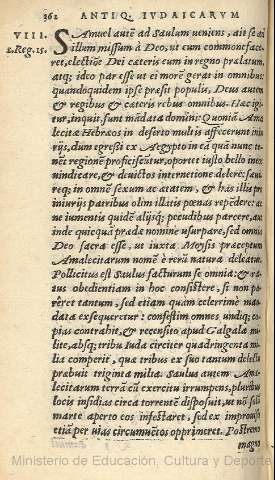 362 ANTIQ. IVDAICARVM
VIII.
1.Reg.15.
SAmuel autē ad Saulum ueniens, ait se ad
illum missum à Deo, ut eum commonefaceret,
electiōē Dei cæteris eum in regno prælatum,
atq; ideo par esse ut ei morē gerat in omnibus:
quandoquidem ipse præsit populis, Deus autem
& regibus & cæteris rebus omnibus. Hæc igitur,
inquit, sunt mādata domini: Quoniā Amalecitæ
Hebræos in deserto multis affecerunt iniurijs,
dum egressi ex Aegypto in eā quā nunc tenēt
regionē proficiscerētur, oportet iusto bello hos
uindicare, & deuictos internetione delere: saurēq;
in omnē sexum ac ætatem, & has illis pro
iniurijs patribus olim illatis pœnas repēdere: at
ne iumentis quidē alijsq; pecudibus parcere, aut
inde quicquā prædæ nomine usurpare, sed omnia
Deo sacra esse, ut iuxta Moysis præceptum
Amalecitarum nomē è rerū natura deleatur.
Pollicitus est Saulus facturum se omnia: & ratus
obedientiam in hoc consistere, si non pareret
tantum, sed etiam quàm celerrimè mandata
exsequeretur: confestim omnes undiq; copias
contrahit, & recensito apud Galgala milite,
absq; tribu Iuda circiter quadringenta millia
comperit, quæ tribus ex suo tantum delectu
præbuit triginta millia. Saulus autem Amalecitarum
terrā cū exercitu irrumpens, pluribus
locis insidias circa torrentē disposuit, ut nō solū
marte aperto eos infestaret, sed ex improuiso
etiā per uias circumuētos opprimeret. Postremò
magno
Ministerio de Educación, Cultura y Deporte